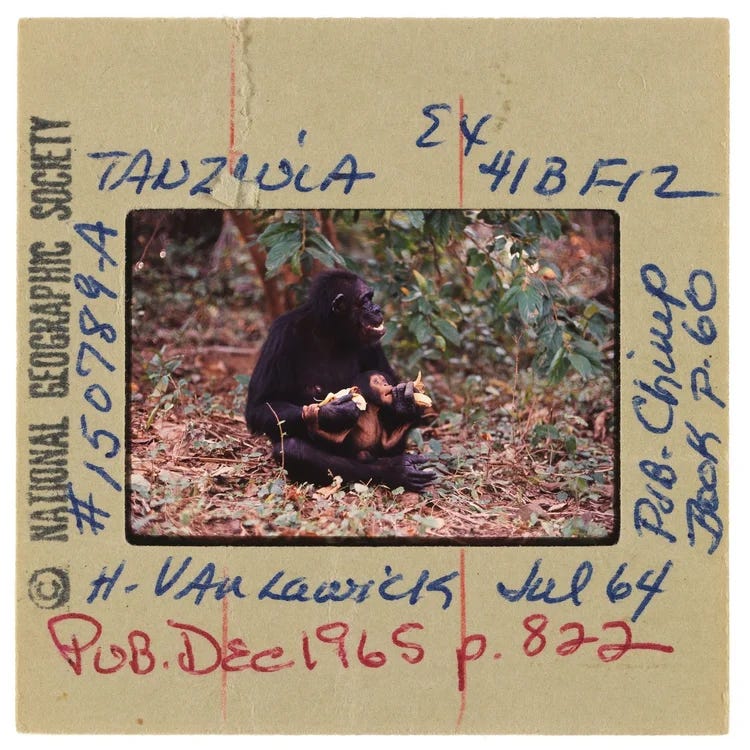 © NATIONAL GEOGRAPHIC SOCIETY
#150789-A
TANZANIA
Ex
41B F-12
PUB. Chimp
Book p. 60
H. VAN LAWICK Jul 64
PUB. DEC 1965 p. 822